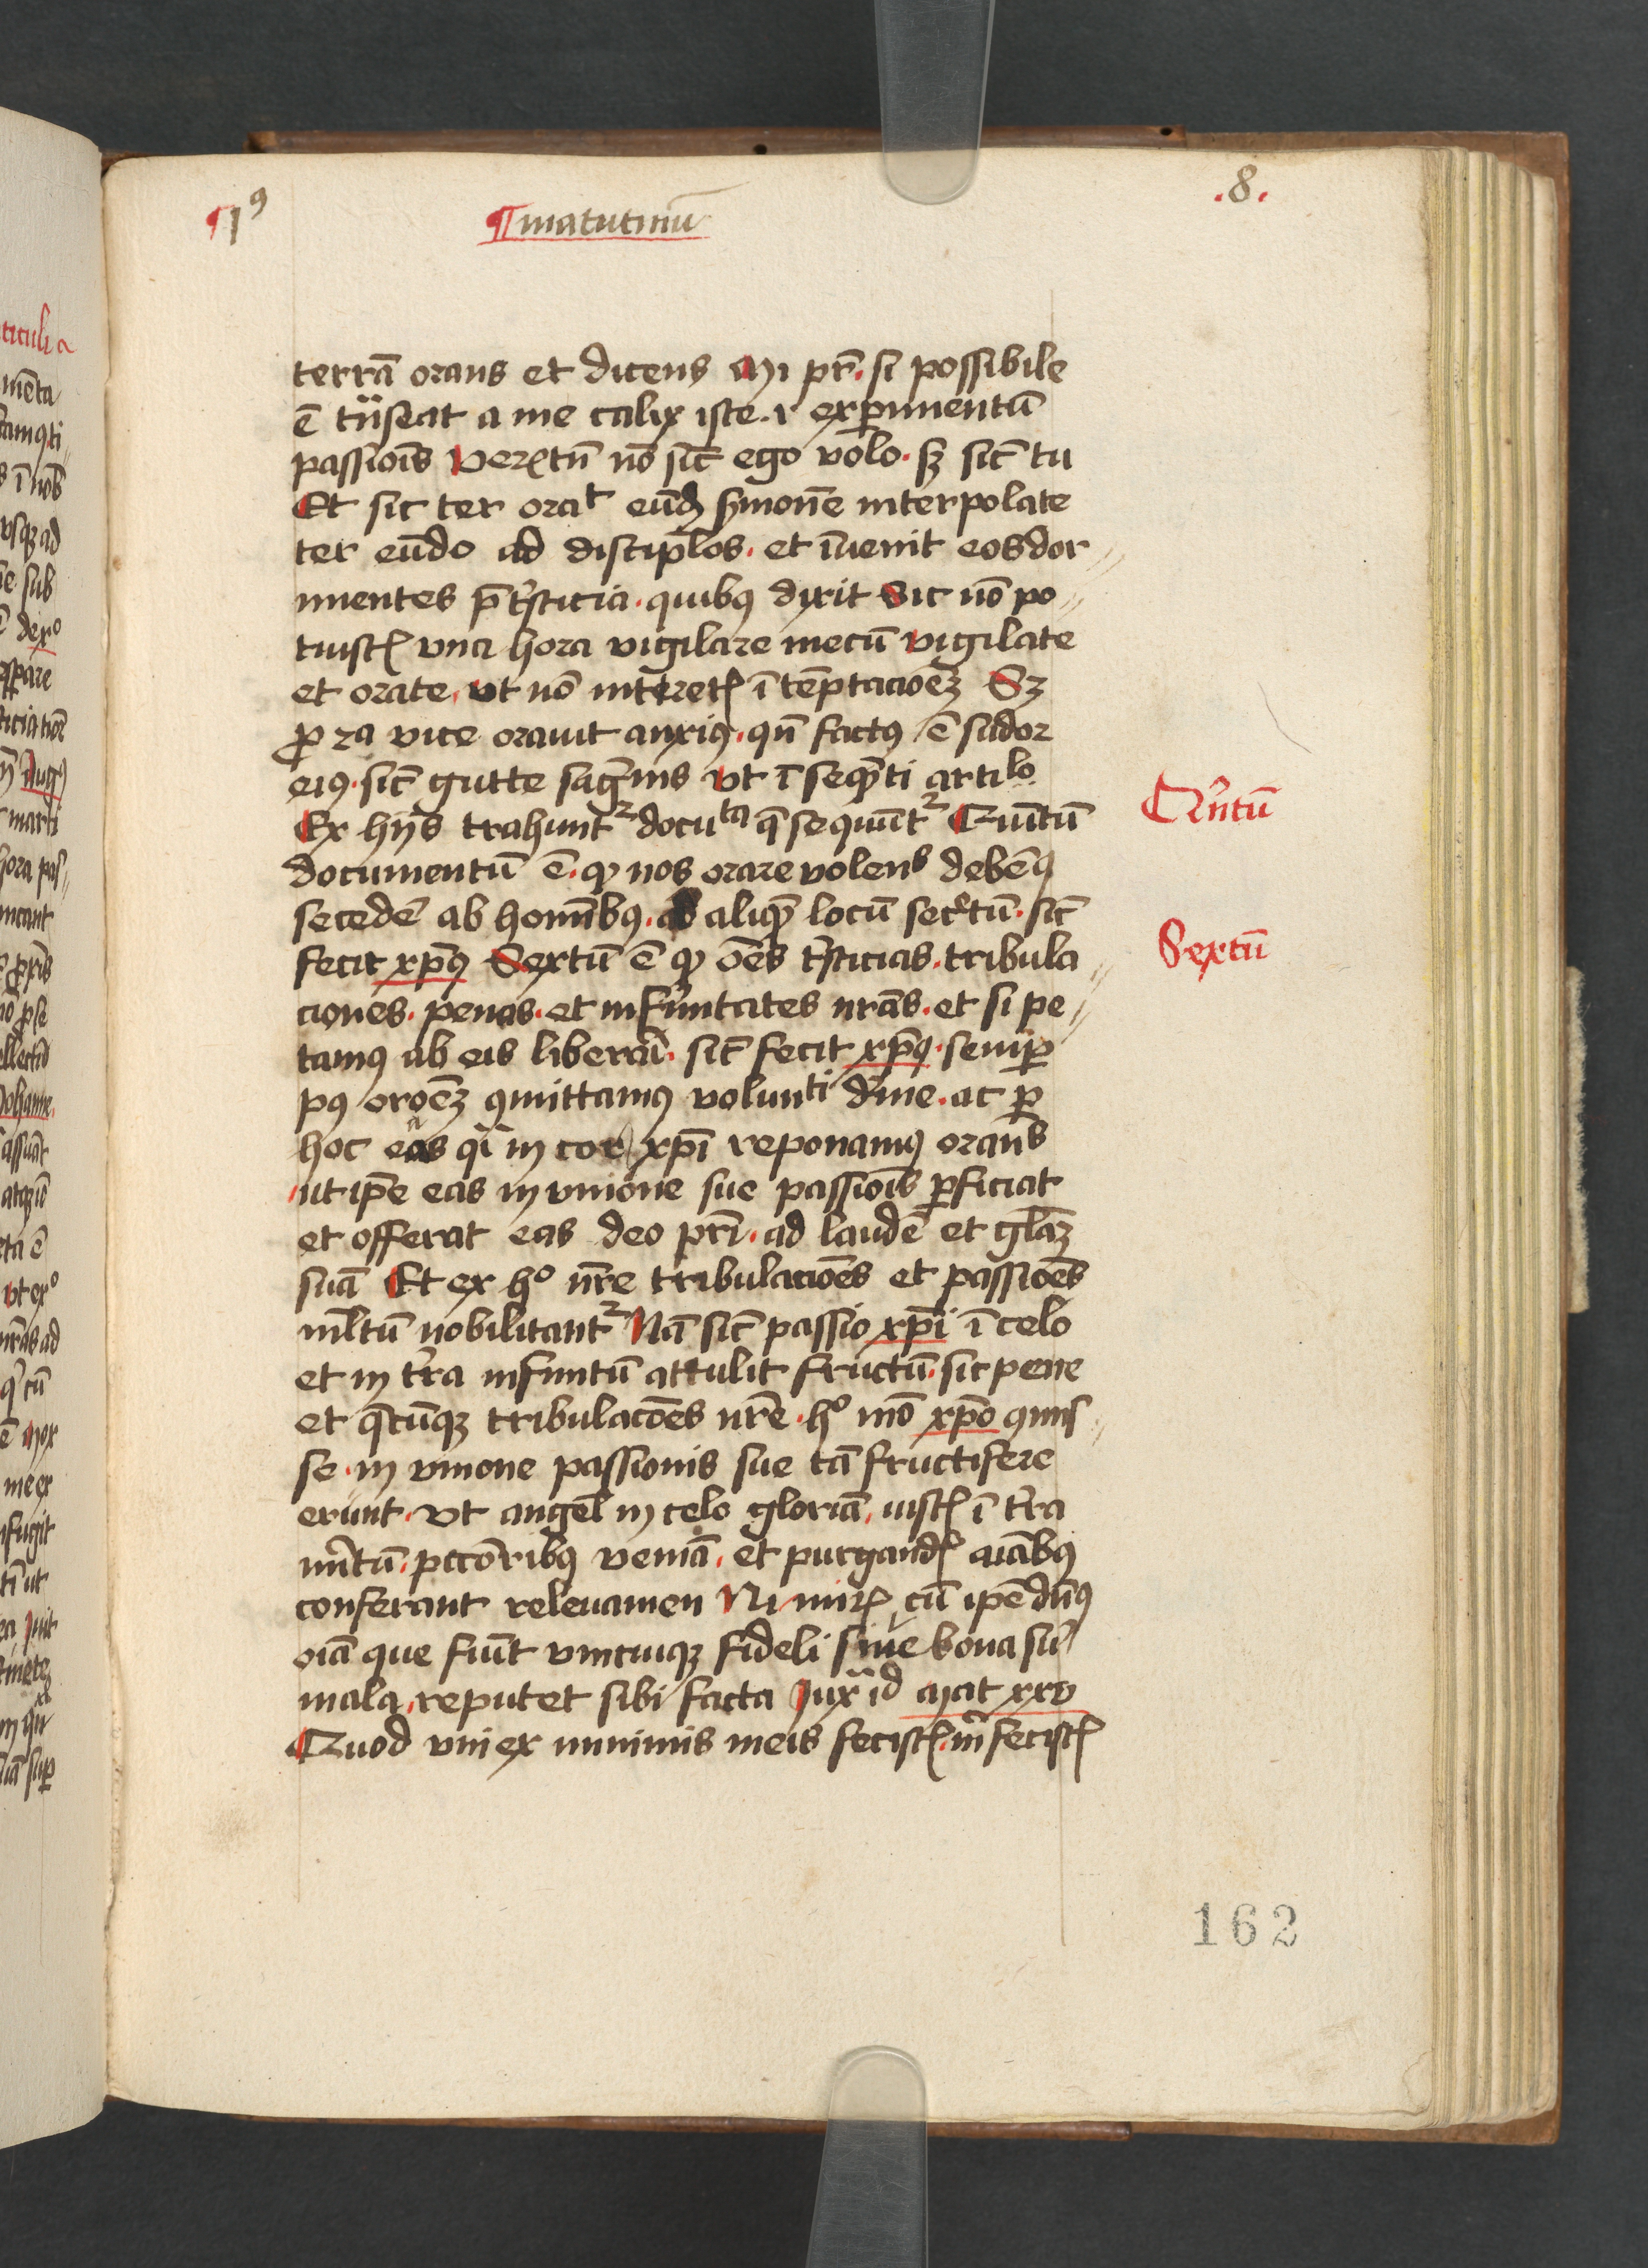 ¶1⁹ ¶matutinū .8.
terrā orans et dicens Mi pr̄. si possibile
ē tn̄seat a me calix iste. i exp̄imentū
passiōis Verūtn̄ nō sic̄ ego volo. sꝫ sic̄ tu
Et sic ter orat eūdꝫ sꝫmonē interpolate
ter eūdo ad discip̄los. et īuenit eos dor
mientes p̄ tⁱsticia. quibꝯ dixit Sic nō po
tuistꝭ vna hora vigilare mecū vigilate
et orate, vt nō intretꝭ ī tēptacioēꝫ Sꝫ
ꝓ 2a vice orauit anxiꝰ. qn̄ factꝰ ē sudor
eiꝰ. sic̄ gutte sāgⁱnis vt ī seqn̄ti artⁱlo
Ex hijs trahuntᷣ docuta q̄ sequūtᷣ Quītū
documentū ē. qꝫ nos orare volens debemꝰ
secedē ab homībꝰ. ad aliquē locū secʳtū. sic̄
fecit xp̄ꝰ Sextū ē qꝫ oēs tⁱsticias. tribula
ciones. penas. et infirmitates nr̄as. et si pe
tamꝰ ab eis liberari. sic̄ fecit xp̄ꝰ. semꝑ
pꝰ oroēꝫ ꝯmittamꝰ volunti dⁱuine. ac ꝑ
hoc eas qⁱ in cor xp̄i reponamꝰ orans
ut ip̄e eas in vnione sue passiōis ꝑficiat
et offerat eas deo pr̄i. ad laudē et gl̄aꝫ
suā Et ex hº nr̄e tribulacioēs et passioēs
ml̄tū nobilitantᷣ Nā sic̄ passio xp̄i ī celo
et in tʳra infinitū attulit fructū. sic pene
et q̄cūqꝫ tribulacōes nr̄e. hº mō xp̄o ꝯmis
se. in vnione passionis sue tā fructifere
erunt. vt angel̄ in celo gloriā, iustꝭ ī tʳra
mⁱtū. pccōribꝰ veniā. et purgandꝭ aīabꝰ
conferant releuamen Ni mirꝭ cū ip̄e dn̄s
oīa que fiūt vnicuiqꝫ fideli siue bona siᵘ
mala, reputet sibi facta Jux̄ id Mat xxv
Quod vni ex minimis meis fecistꝭ. mⁱ fecistꝭ
Qⁱntū
Sextū
162